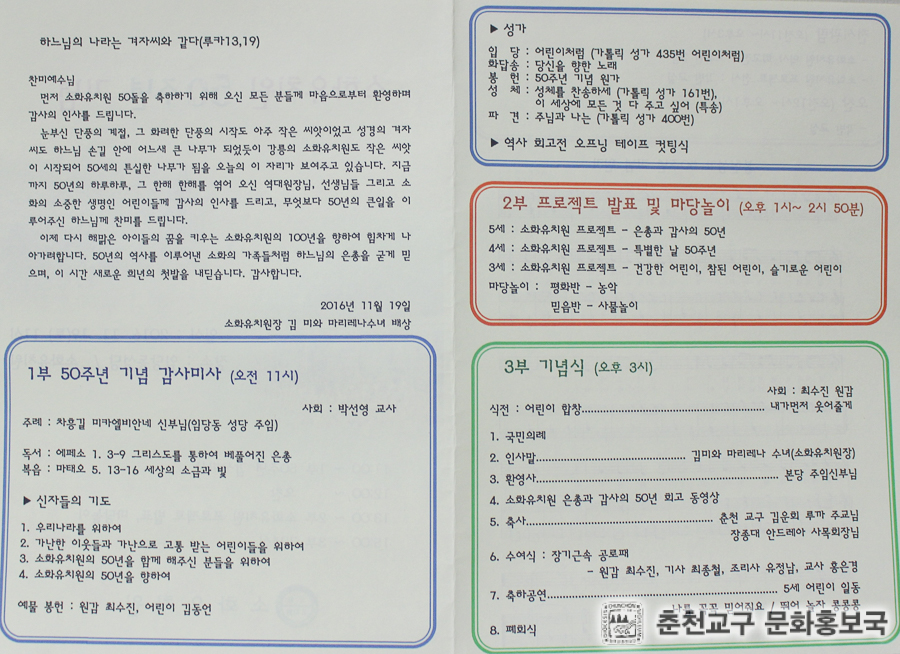 하느님의 나라는 겨자씨와 같다(루카13,19)
찬미예수님
먼저 소화유치원 50돌을 축하하기 위해 오신 모든 분들께 마음으로부터 환영하며
감사의 인사를 드립니다.
눈부신 단풍의 계절, 그 화려한 단풍의 시작도 아주 작은 씨앗이었고 성경의 겨자
씨도 하느님 손길 안에 어느새 큰 나무가 되었듯이 강릉의 소화유치원도 작은 씨앗
이 시작되어 50세의 튼실한 나무가 됨을 오늘의 이 자리가 보여주고 있습니다. 지금
까지 50년의 하루하루, 그 한해 한해를 엮어 오신 역대원장님, 선생님들 그리고 소
화의 소중한 생명인 어린이들께 감사의 인사를 드리고, 무엇보다 50년의 큰일을 이
루어주신 하느님께 찬미를 드립니다.
이제 다시 해맑은 아이들의 꿈을 키우는 소화유치원의 100년을 향하여 힘차게 나
아가렵니다. 50년의 역사를 이루어낸 소화의 가족들처럼 하느님의 은총을 굳게 믿
으며, 이 시간 새로운 희년의 첫발을 내딛습니다. 감사합니다.
2016년 11월 19일
소화유치원장 김 미와 마리레나수녀 배상
1부 50주년 기념 감사미사 (오전 11시)
사회 : 박선영 교사
주례 : 차흥길 미카엘비안네 신부님(임당동 성당 주임)
독서 : 에페소 1. 3-9 그리스도를 통하여 베풀어진 은총
복음 : 마태오 5. 13-16 세상의 소금과 빛
▶ 신자들의 기도
1. 우리나라를 위하여
2. 가난한 이웃들과 가난으로 고통 받는 어린이들을 위하여
3. 소화유치원의 50년을 함께 해주신 분들을 위하여
4. 소화유치원의 50년을 향하여
예물 봉헌 : 원감 최수진, 어린이 김동언
▶ 성가
입 당 : 어린이처럼 (가톨릭 성가 435번 어린이처럼)
화답송 : 당신을 향한 노래
봉 헌 : 50주년 기념 원가
성 체 : 성체를 찬송하세 (가톨릭 성가 161번),
이 세상에 모든 것 다 주고 싶어 (특송)
파 견 : 주님과 나는 (가톨릭 성가 400번)
▶ 역사 회고전 오프닝 테이프 컷팅식
2부 프로젝트 발표 및 마당놀이 (오후 1시~ 2시 50분)
5세 : 소화유치원 프로젝트 - 은총과 감사의 50년
4세 : 소화유치원 프로젝트 - 특별한 날 50주년
3세 : 소화유치원 프로젝트 - 건강한 어린이, 참된 어린이, 슬기로운 어린이
마당놀이 : 평화반 - 농악
믿음반 - 사물놀이
3부 기념식 (오후 3시)
사회 : 최수진 원감
식전 : 어린이 합창........................................ 내가먼저 웃어줄게
1. 국민의례
2. 인사말........................................ 김미와 마리레나 수녀(소화유치원장)
3. 환영사........................................ 본당 주임신부님
4. 소화유치원 은총과 감사의 50년 회고 동영상
5. 축사........................................ 춘천 교구 김운회 루까 주교님
장종대 안드레아 사목회장님
6. 수여식 : 장기근속 공로패
- 원감 최수진, 기사 최종철, 조리사 유정남, 교사 홍은경
7. 축하공연........................................ 5세 어린이 일동
8. 폐회식
춘천교구 문화홍보국